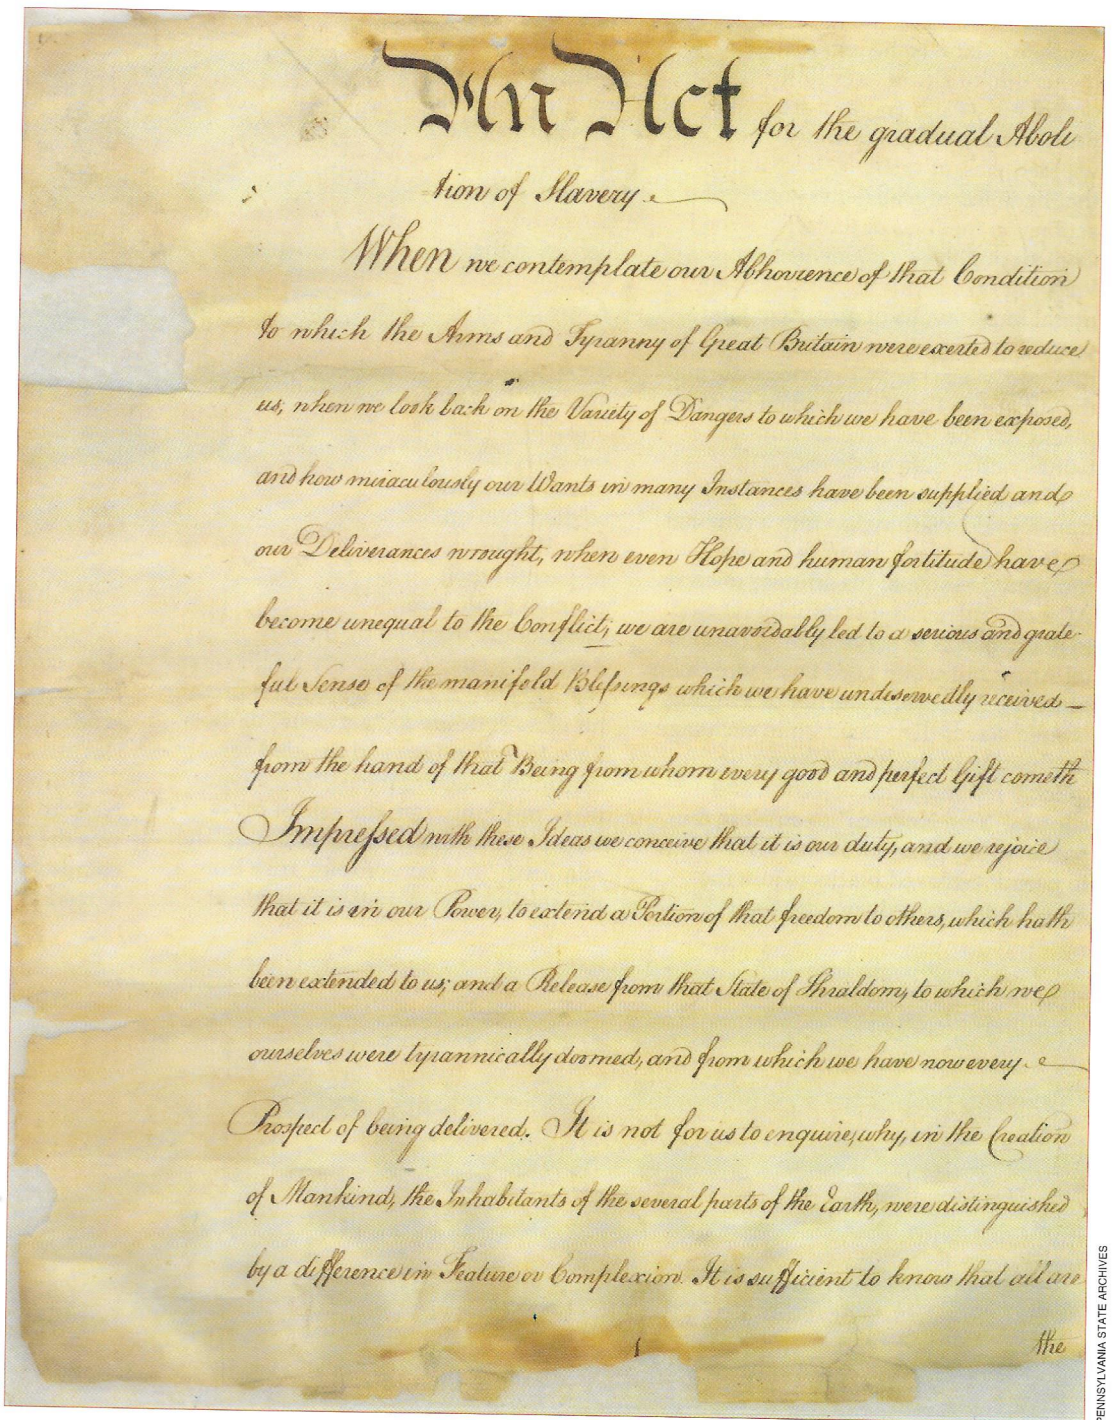 An Act for the gradual Aboli
tion of Slavery.
When we contemplate our Abhorrence of that Condition
to which the Arms and Tyranny of Great Britain were exerted to reduce
us, when we look back on the Variety of Dangers to which we have been exposed,
and how miraculously our Wants in many Instances have been supplied and
our Deliverances wrought, when even Hope and human fortitude have
become unequal to the Conflict; we are unavoidably led to a serious and grate-
ful Sense of the manifold Blessings which we have undeservedly received—
from the hand of that Being from whom every good and perfect Gift cometh
Impressed with these Ideas we conceive that it is our duty, and we rejoice
that it is in our Power, to extend a Portion of that freedom to others, which hath
been extended to us; and a Release from that State of Thraldom, to which we
ourselves were tyrannically doomed, and from which we have now every
Prospect of being delivered. It is not for us to enquire, why, in the Creation
of Mankind, the Inhabitants of the several parts of the Earth, were distinguished
by a difference in Feature or Complexion. It is sufficient to know that all are
the
1
PENNSYLVANIA STATE ARCHIVES